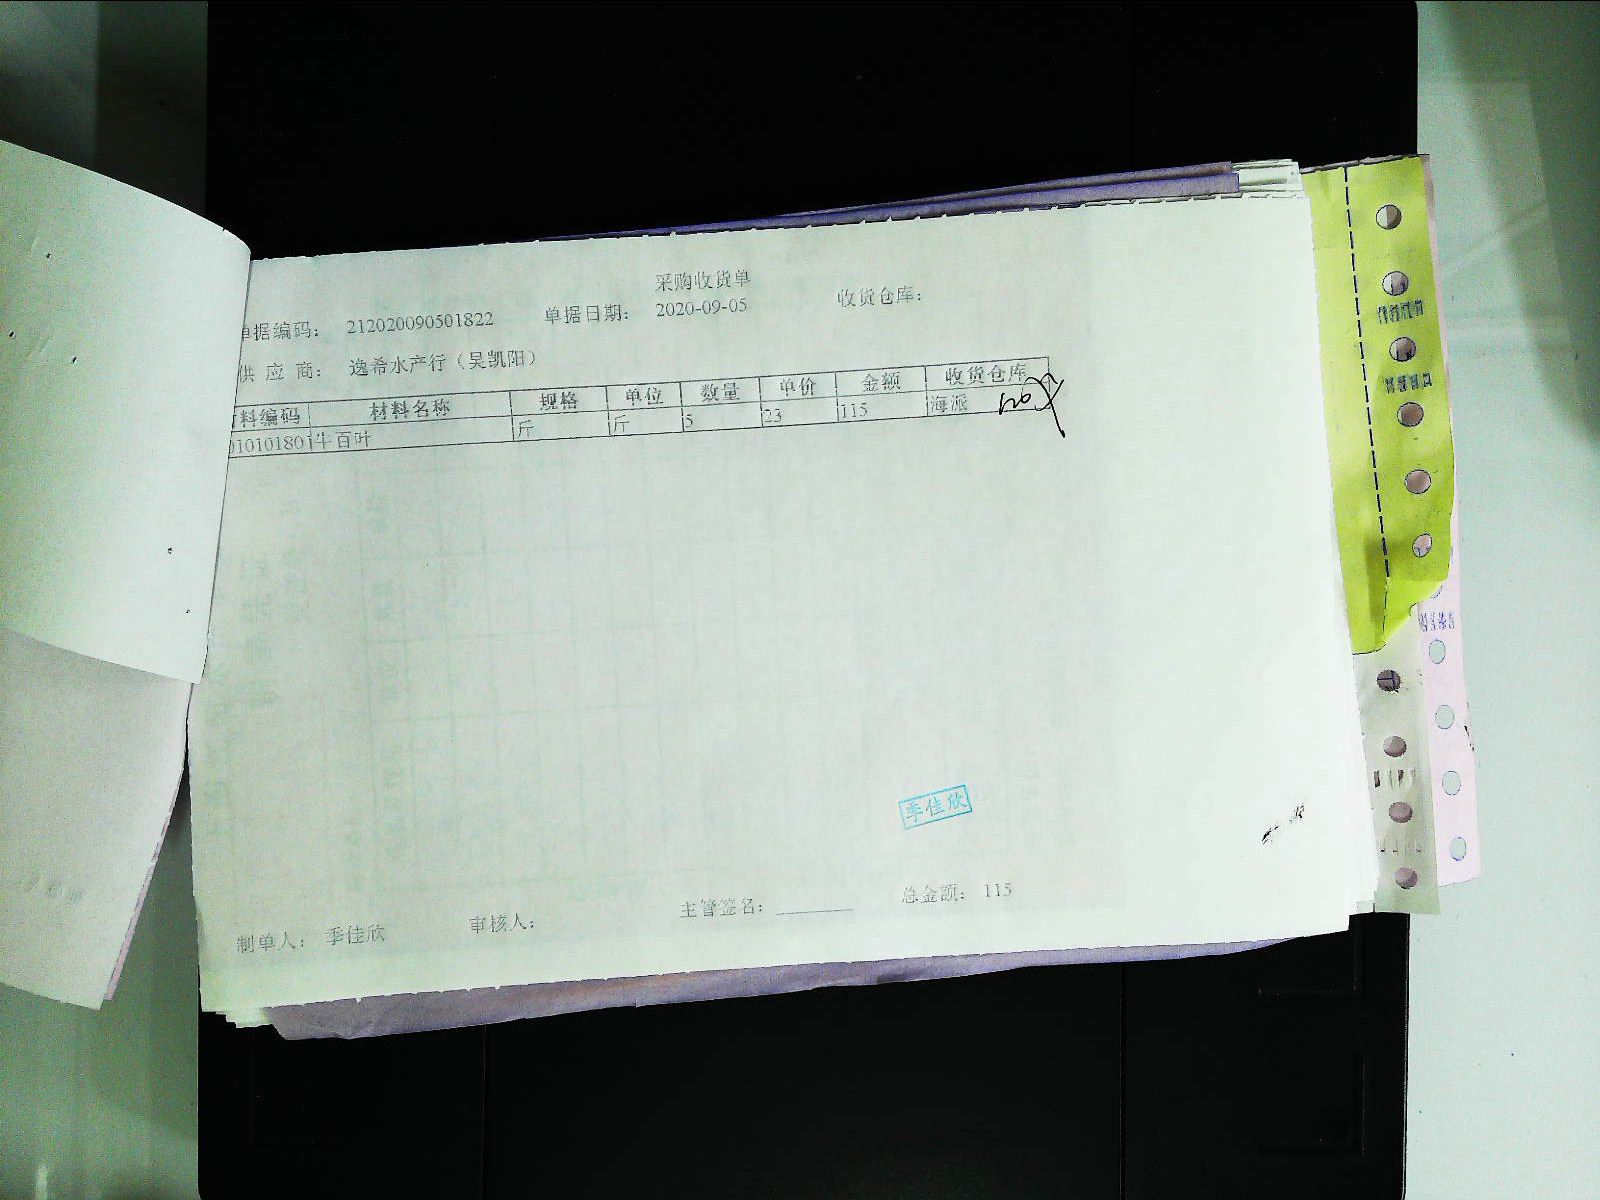 采购收货单
单据编码： 212020090501822 单据日期： 2020-09-05 收货仓库：
供 应 商： 逸希水产行（吴凯阳）
料编码 材料名称 规格 单位 数量 单价 金额 收货仓库
010101801 牛百叶 斤 斤 5 23 115 海派
季佳欣
制单人： 季佳欣 审核人： 主管签名： 总金额： 115